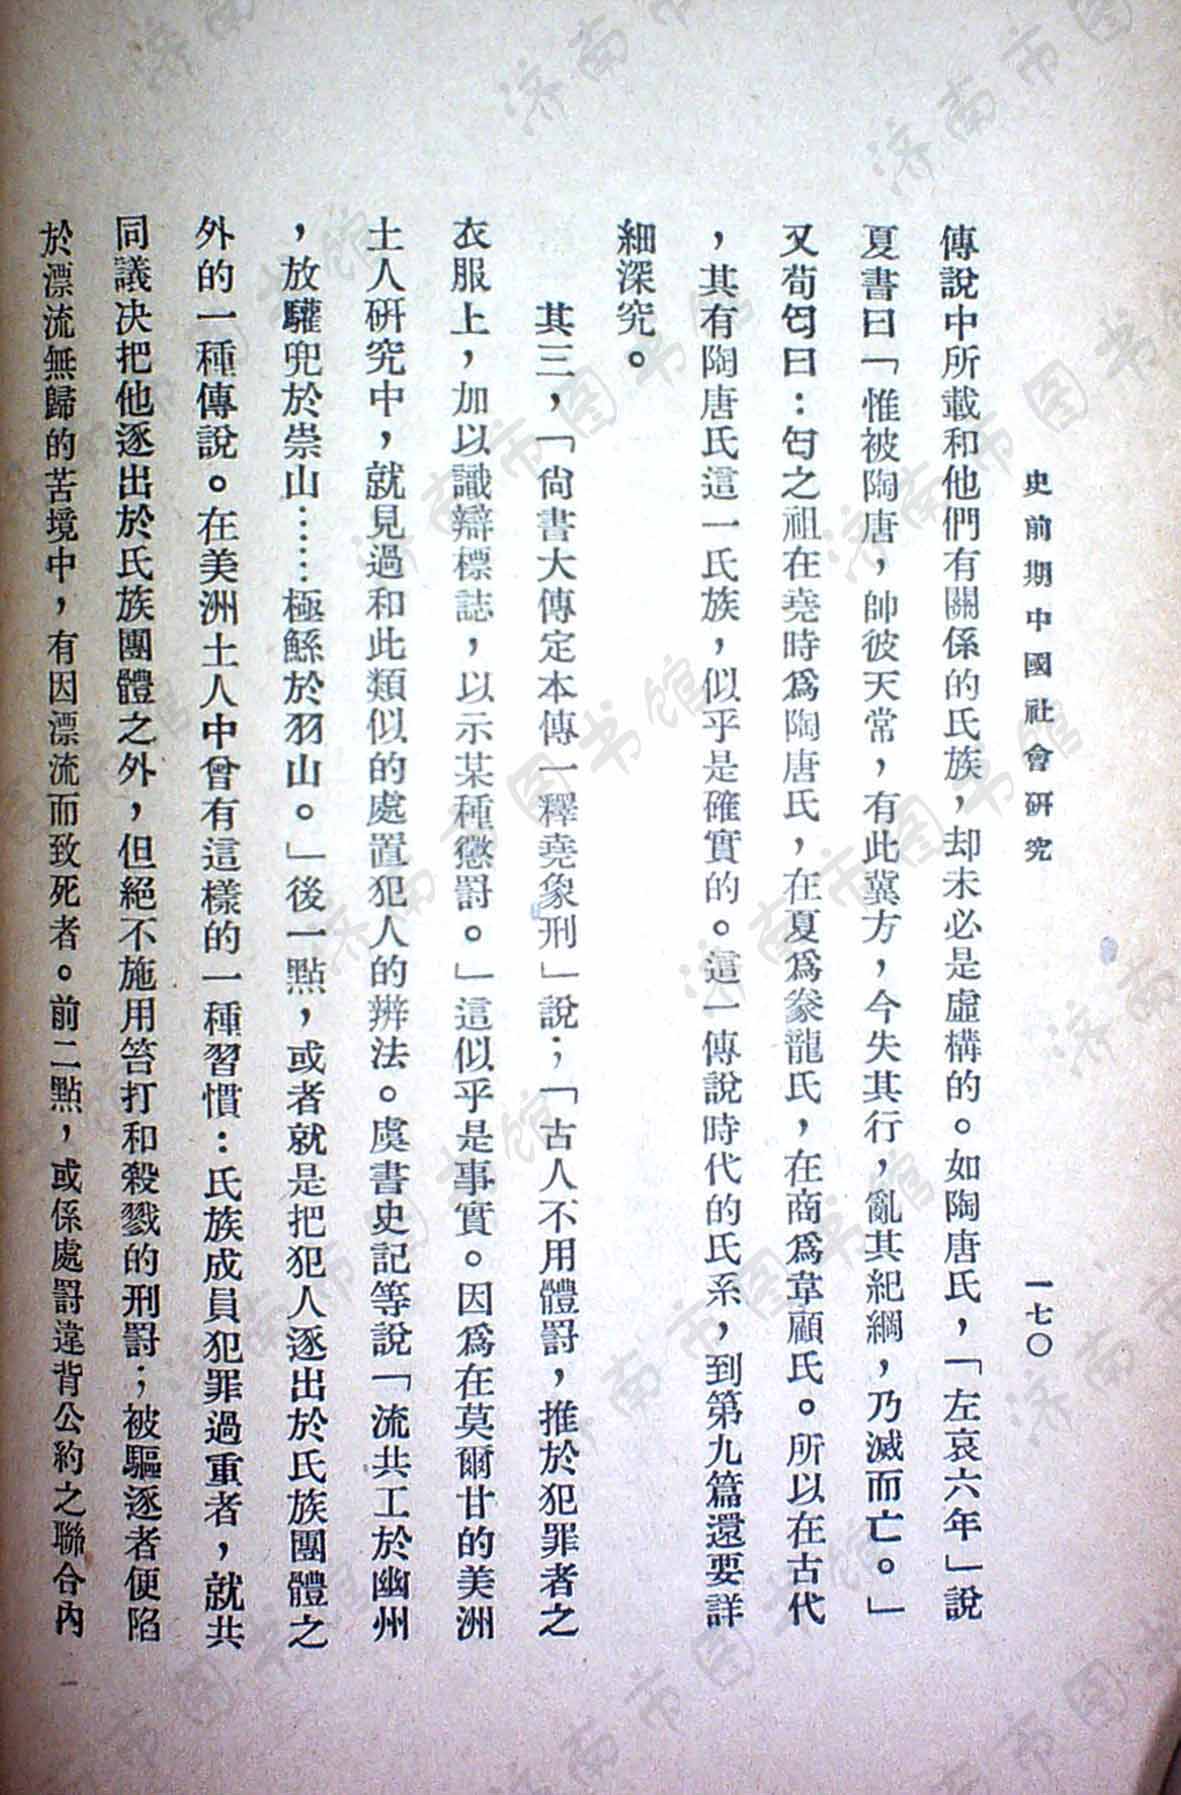 史前期中國社會研究
一七〇
傳說中所載和他們有關係的氏族，却未必是虛構的。如陶唐氏，「左哀六年」說
夏書曰「惟被陶唐，帥彼天常，有此冀方，今失其行，亂其紀綱，乃滅而亡。」
又荀匄曰：匄之祖在堯時爲陶唐氏，在夏爲豢龍氏，在商爲韋顧氏。所以在古代
，其有陶唐氏這一氏族，似乎是確實的。這一傳說時代的氏系，到第九篇還要詳
細深究。
其三，「尙書大傳定本傳一釋堯象刑」說；「古人不用體罸，推於犯罪者之
衣服上，加以識辯標誌，以示某種懲罸。」這似乎是事實。因爲在莫爾甘的美洲
土人研究中，就見過和此類似的處置犯人的辨法。虞書史記等說「流共工於幽州
，放驩兜於崇山……極鯀於羽山。」後一點，或者就是把犯人逐出於氏族團體之
外的一種傳說。在美洲土人中曾有這樣的一種習慣：氏族成員犯罪過重者，就共
同議决把他逐出於氏族團體之外，但絕不施用笞打和殺戮的刑罸；被驅逐者便陷
於漂流無歸的苦境中，有因漂流而致死者。前二點，或係處罸違背公約之聯合內
济南市图书馆